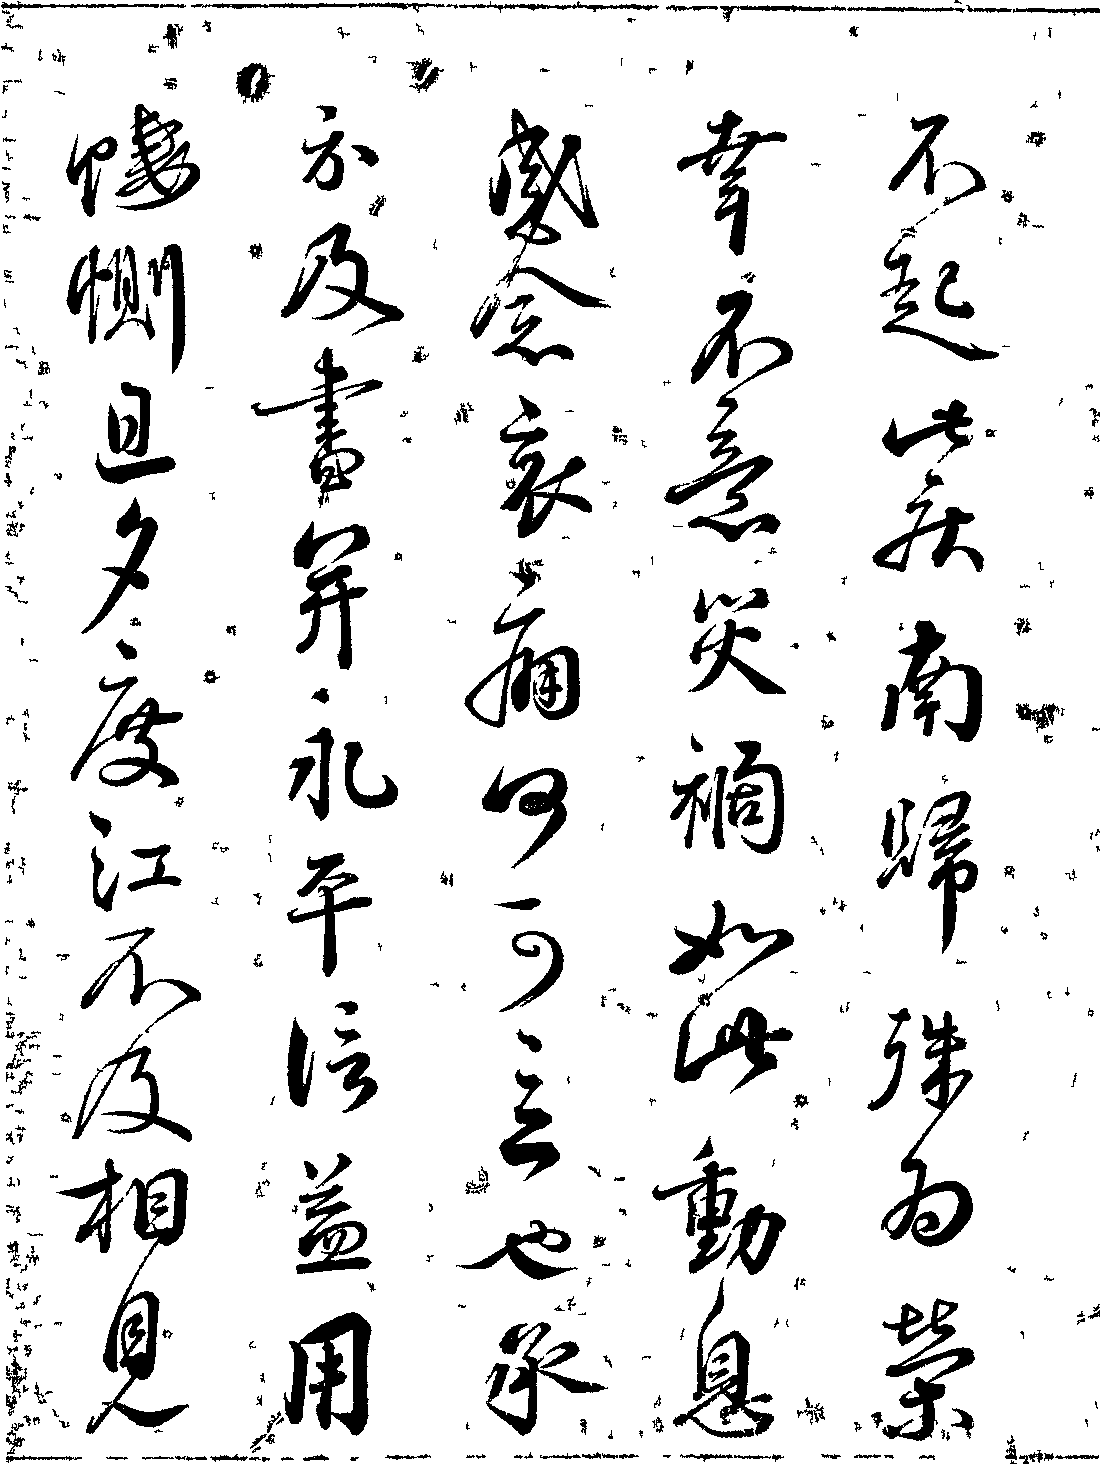 不起此疾南歸殊為榮
幸不意災禍如此動息
感念哀痛何可言也承
示及書并永平信益用
悽惻旦夕度江不及相見